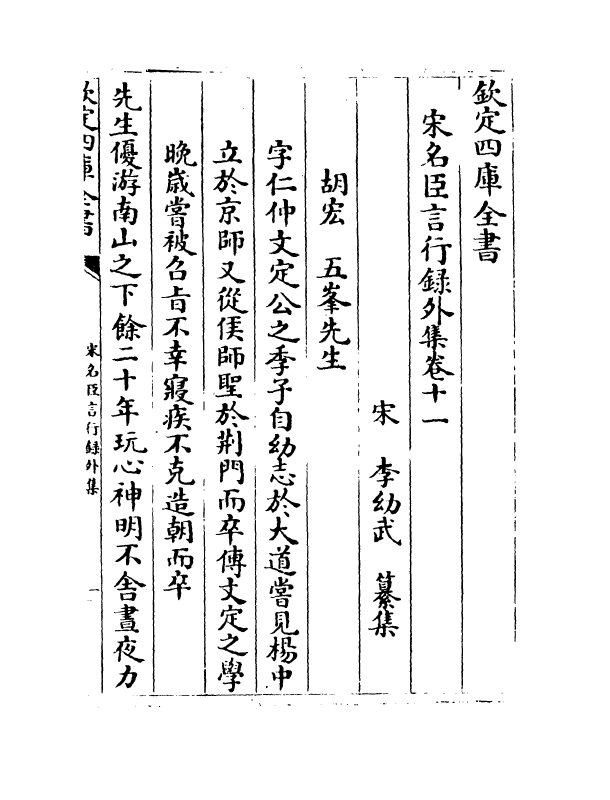 欽定四庫全書
宋名臣言行録外集卷十一
宋 李幼武 纂集
胡宏 五峯先生
字仁仲文定公之季子自幼志於大道嘗見楊中
立於京師又從侯師聖於荆門而卒傳文定之學
晩歳嘗被召㫖不幸寢疾不克造朝而卒
先生優游南山之下餘二十年玩心神明不舎晝夜力
欽定四庫全書
宋名臣言行録外集
一